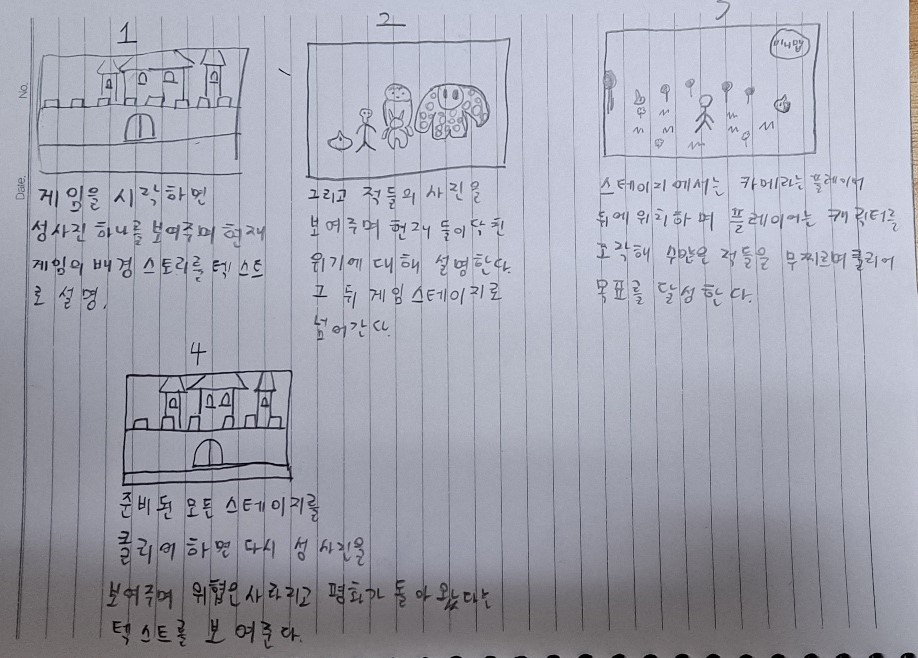 No.
Date.
1
게임을 시작하면
성사진 하나를 보여주며 현재
게임의 배경 스토리를 텍스트
로 설명.
2
그리고 적들의 사진을
보여주며 현재 들이닥친
위기에 대해 설명한다.
그 뒤 게임 스테이지로
넘어간다.
3
미니맵
스테이지에서는 카메라는 플레이어
뒤에 위치하며 플레이어는 캐릭터를
조작해 수많은 적들을 무찌르며 클리어
목표를 달성한다.
4
준비된 모든 스테이지를
클리어 하면 다시 성 사진을
보여주며 위협은 사라지고 평화가 돌아왔다는
텍스트를 보여준다.